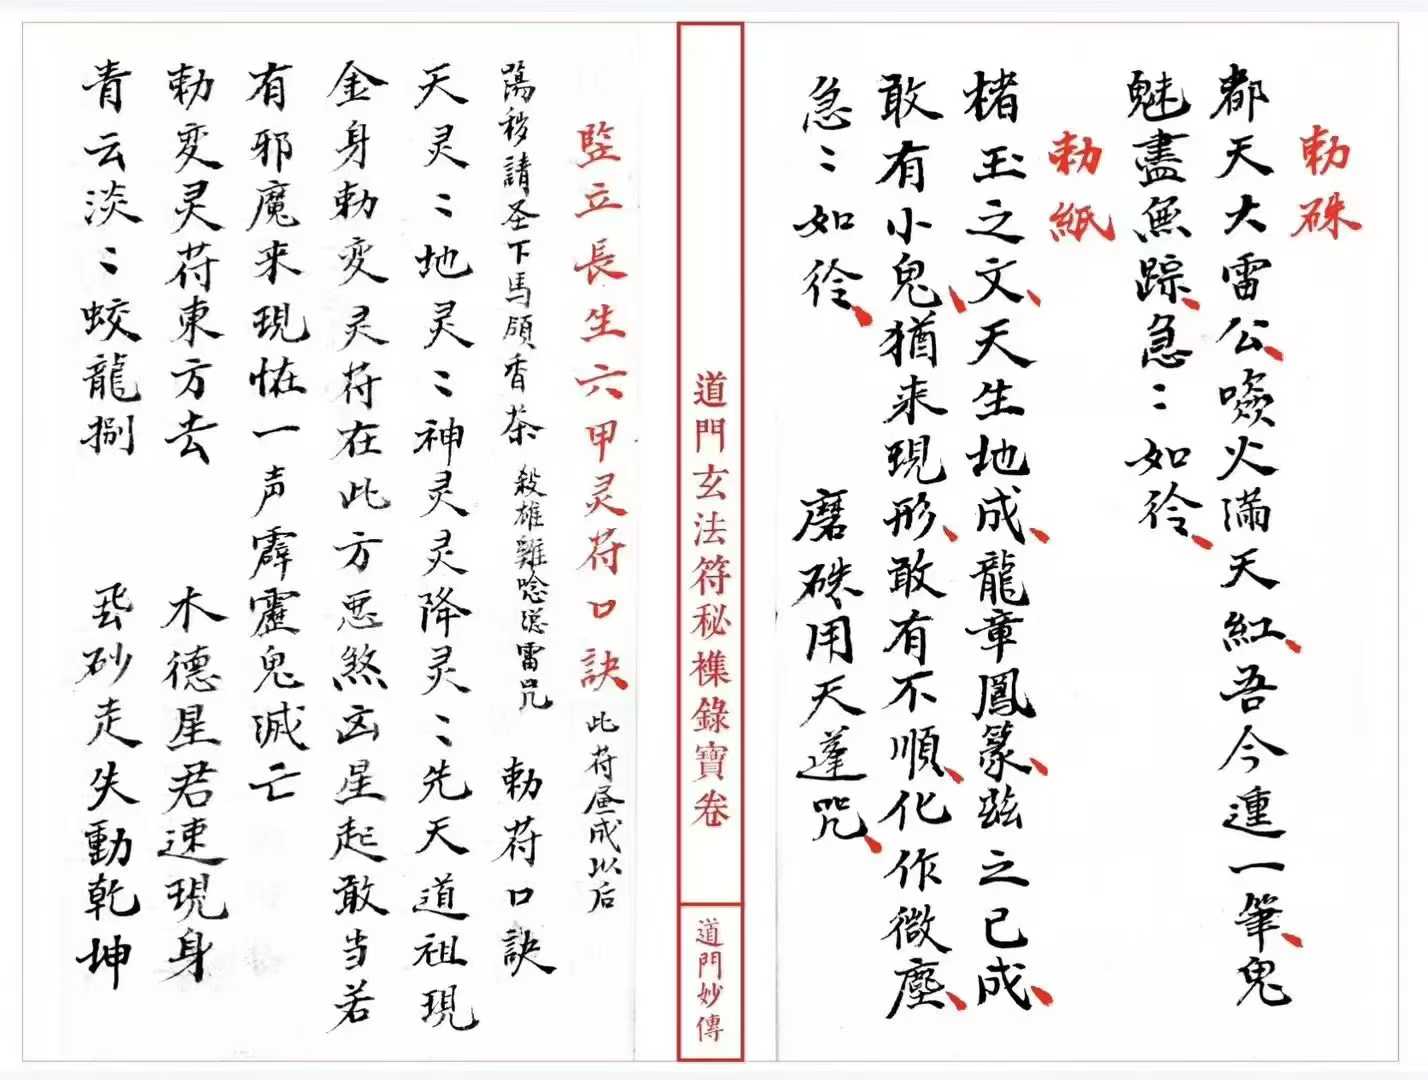 勅硃
都天大雷公噀火滿天紅吾今運一筆鬼
魅盡無踪急〻如彾
勅紙
楮玉之文天生地成龍章鳳篆玆之已成
敢有小鬼猶来現形敢有不順化作微塵
急〻如彾 磨硃用天蓬咒
道門玄法符秘襍錄寶卷
道門妙傳
監立長生六甲灵苻口訣 此苻昼成以后
蕩秽請圣下馬領香茶 殺雄雞唸 雷咒 勅苻口訣
天灵〻地灵〻神灵灵降灵〻先天道祖現
金身勅变灵苻在此方恶煞凶星起敢当若
有邪魔来現怪一声霹靂鬼滅亡
勅变灵苻東方去 木德星君速現身
青云淡〻蛟龍捌 砂走失動乾坤